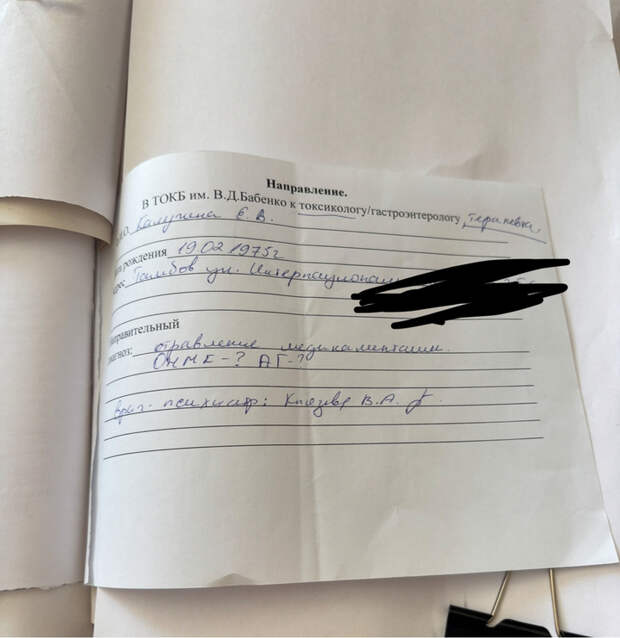 Направление.
В ТОКБ им. В.Д.Бабенко к токсикологу/гастроэнтерологу, терапевту
Калугина Е. В.
рождения 19 02 1975г
Тамбов ул. Интернационал
диагноз: отравление медикаментами.
ОНМК-? АГ-?
Врач-психиатр: Князева В.А.